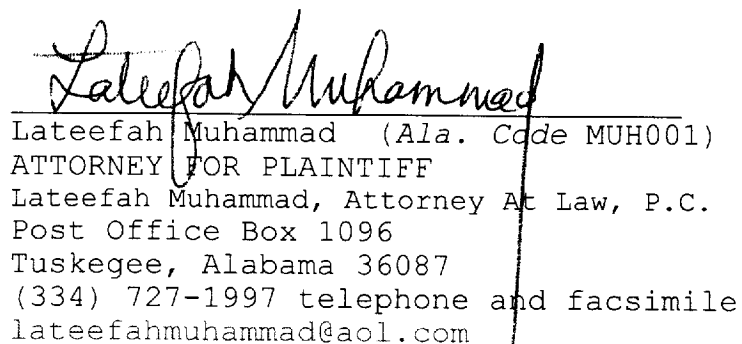 Lateefah Muhammad
Lateefah Muhammad (Ala. Code MUH001)
ATTORNEY FOR PLAINTIFF
Lateefah Muhammad, Attorney At Law, P.C.
Post Office Box 1096
Tuskegee, Alabama 36087
(334) 727-1997 telephone and facsimile
lateefahmuhammad@aol.com